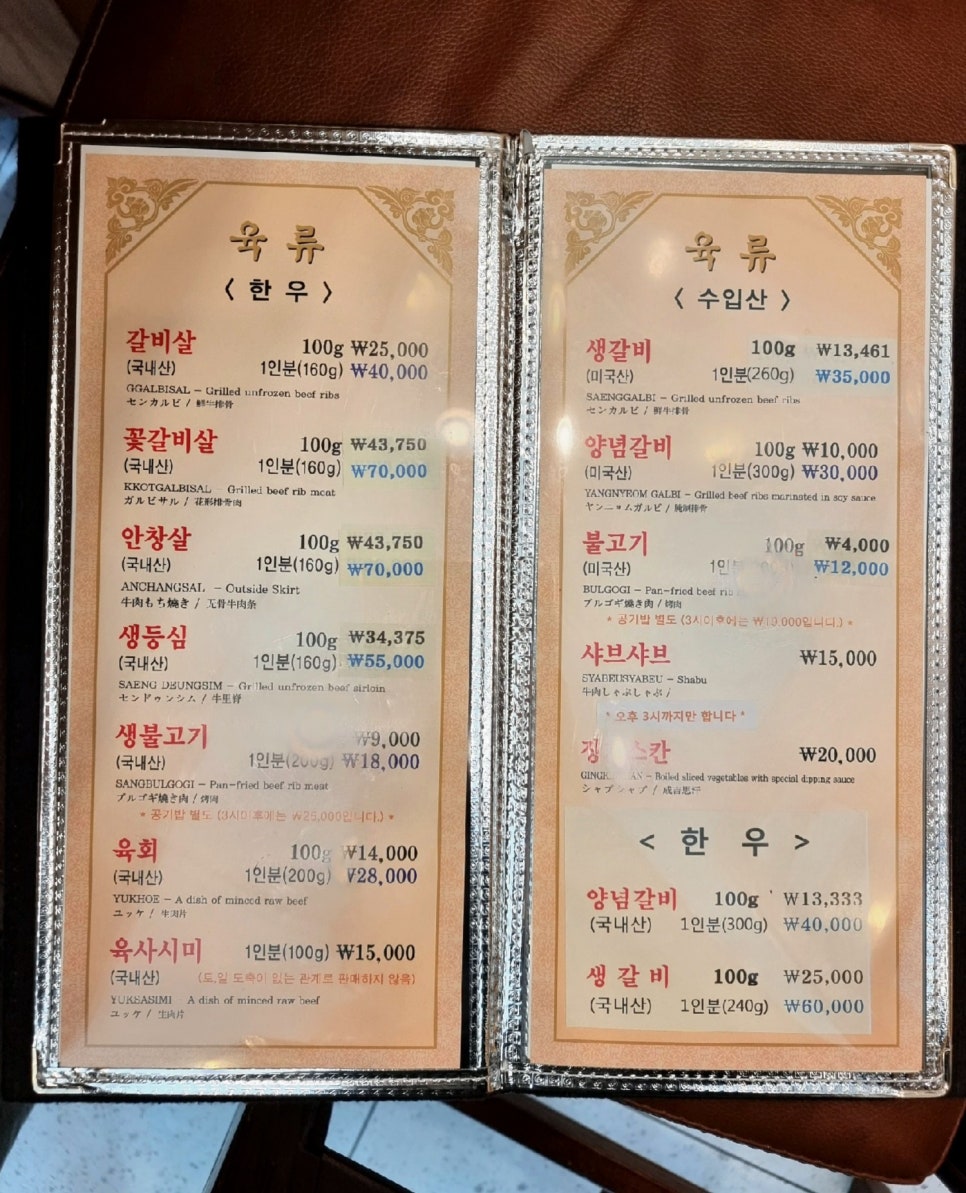 육 류
〈 한 우 〉
갈비살 100g ₩25,000
(국내산) 1인분(160g) ₩40,000
GGALBISAL - Grilled unfrozen beef ribs
センカルビ / 鮮牛排骨
꽃갈비살 100g ₩43,750
(국내산) 1인분(160g) ₩70,000
KKOTGALBISAL - Grilled beef rib meat
ガルビサル / 花形排骨肉
안창살 100g ₩43,750
(국내산) 1인분(160g) ₩70,000
ANCHANGSAL - Outside Skirt
牛肉もち焼き / 无骨牛肉条
생등심 100g ₩34,375
(국내산) 1인분(160g) ₩55,000
SAENG DEUNGSIM - Grilled unfrozen beef sirloin
センドゥンシム / 牛里脊
생불고기 ₩9,000
(국내산) 1인분(200g) ₩18,000
SANGBULGOGI - Pan-fried beef rib meat
プルゴギ焼き肉 / 烤肉
* 공기밥 별도 (3시이후에는 ₩25,000입니다.) *
육회 100g ₩14,000
(국내산) 1인분(200g) ₩28,000
YUKHOE - A dish of minced raw beef
ユッケ / 生肉片
육사시미 1인분(100g) ₩15,000
(국내산) (토,일 도축이 없는 관계로 판매하지 않음)
YUKSASIMI - A dish of minced raw beef
ユッケ / 生肉片
육 류
〈 수입산 〉
생갈비 100g ₩13,461
(미국산) 1인분(260g) ₩35,000
SAENGGALBI - Grilled unfrozen beef ribs
センカルビ / 鮮牛排骨
양념갈비 100g ₩10,000
(미국산) 1인분(300g) ₩30,000
YANGNYEOM GALBI - Grilled beef ribs marinated in soy sauce
ヤンニョムガルビ / 腌制排骨
불고기 100g ₩4,000
(미국산) ₩12,000
BULGOGI - Pan-fried beef
プルゴギ焼き肉 / 烤肉
* 공기밥 별도 (3시이후에는 입니다.) *
샤브샤브 ₩15,000
SYABEUSYABEU - Shabu
牛肉しゃぶしゃぶ /
* 오후 3시까지만 합니다 *
스칸 ₩20,000
- Boiled sliced vegetables with special dipping sauce
シャブシャブ /
< 한 우 >
양념갈비 100g ₩13,333
(국내산) 1인분(300g) ₩40,000
생 갈 비 100g ₩25,000
(국내산) 1인분(240g) ₩60,000